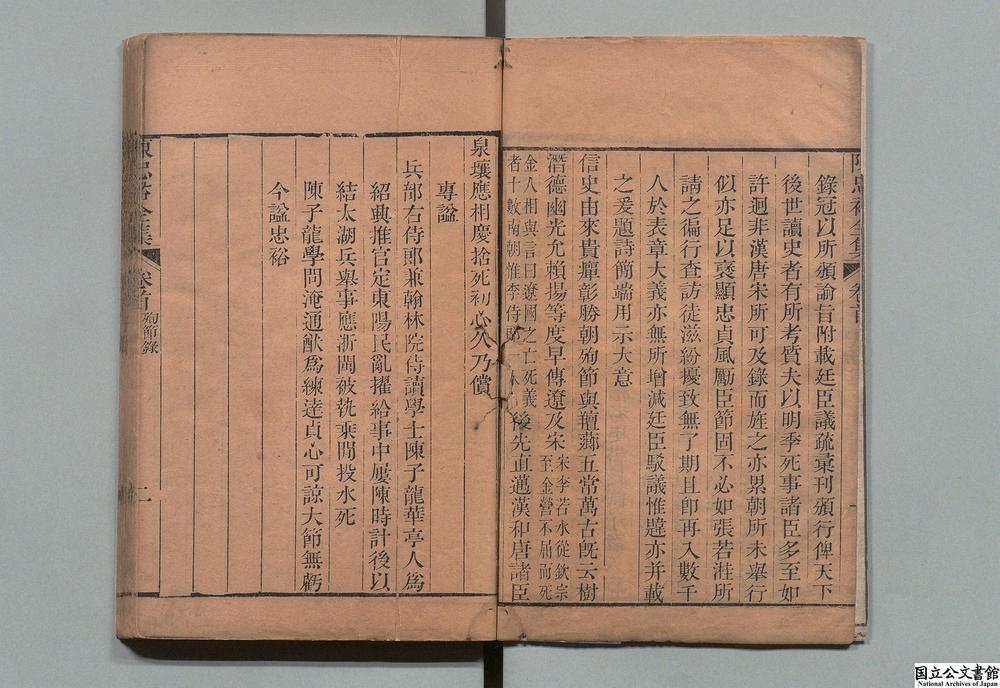 錄冠以所頒諭旨附載廷臣議疏彙刊頒行俾天下
後世讀史者有所考質夫以明季死事諸臣多至如
許迥非漢唐宋所可及錄而旌之亦累朝所未舉行
似亦足以褒顯忠貞風勵臣節固不必如張若溎所
請之徧行查訪徒滋紛擾致無了期且卽再入數千
人於表章大義亦無所增減廷臣駁議惟韙亦并載
之爰題詩簡端用示大意
信史由來貴癉彰勝朝殉節與羶薌五常萬古旣云樹
潛德幽光允賴揚等度早傳遼及宋宋李若水從欽宗至金營不屈而死
金人相與言曰遼國之亡死義者十數南朝惟李侍郎一人後先直邁漢和唐諸臣
陳忠裕全集 卷首
泉壤應相慶捨死初心久乃償
專諡
兵部右侍郎兼翰林院侍讀學士陳子龍華亭人爲
紹興推官定東陽民亂擢給事中屢陳時計後以
結太湖兵舉事應浙閩被執乘間投水死
陳子龍學問淹通猷爲練達貞心可諒大節無虧
今諡忠裕
陳忠裕全集 卷首 殉節錄 二
国立公文書館
National Archives of Japan